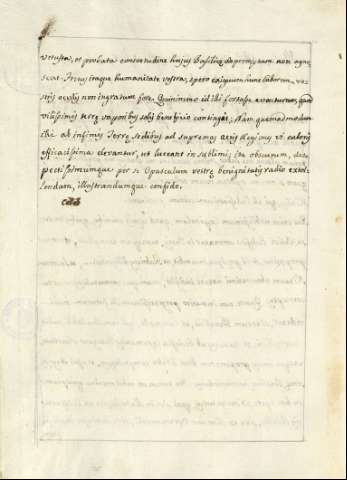 vetusta, et probata consuetudine hujus Basilicæ depromptam non agnoscat. Fretus itaque humanitate vestra, spero exiguum hunc laborem, vestris oculis non ingratum fore. Quinimmo id illi fortasse eventurum, quod vilissimis terræ vaporibus solis beneficio contingit; Nam quemadmodum illi ab infimis Terræ sedibus ad supremas aeris Regiones vi caloris efficacissima elevantur, ut luceant in sublimi; ita obscurum, de
pectissimumque per se Opusculum vestræ benignitatis radio extollendum, illustrandumque confido.